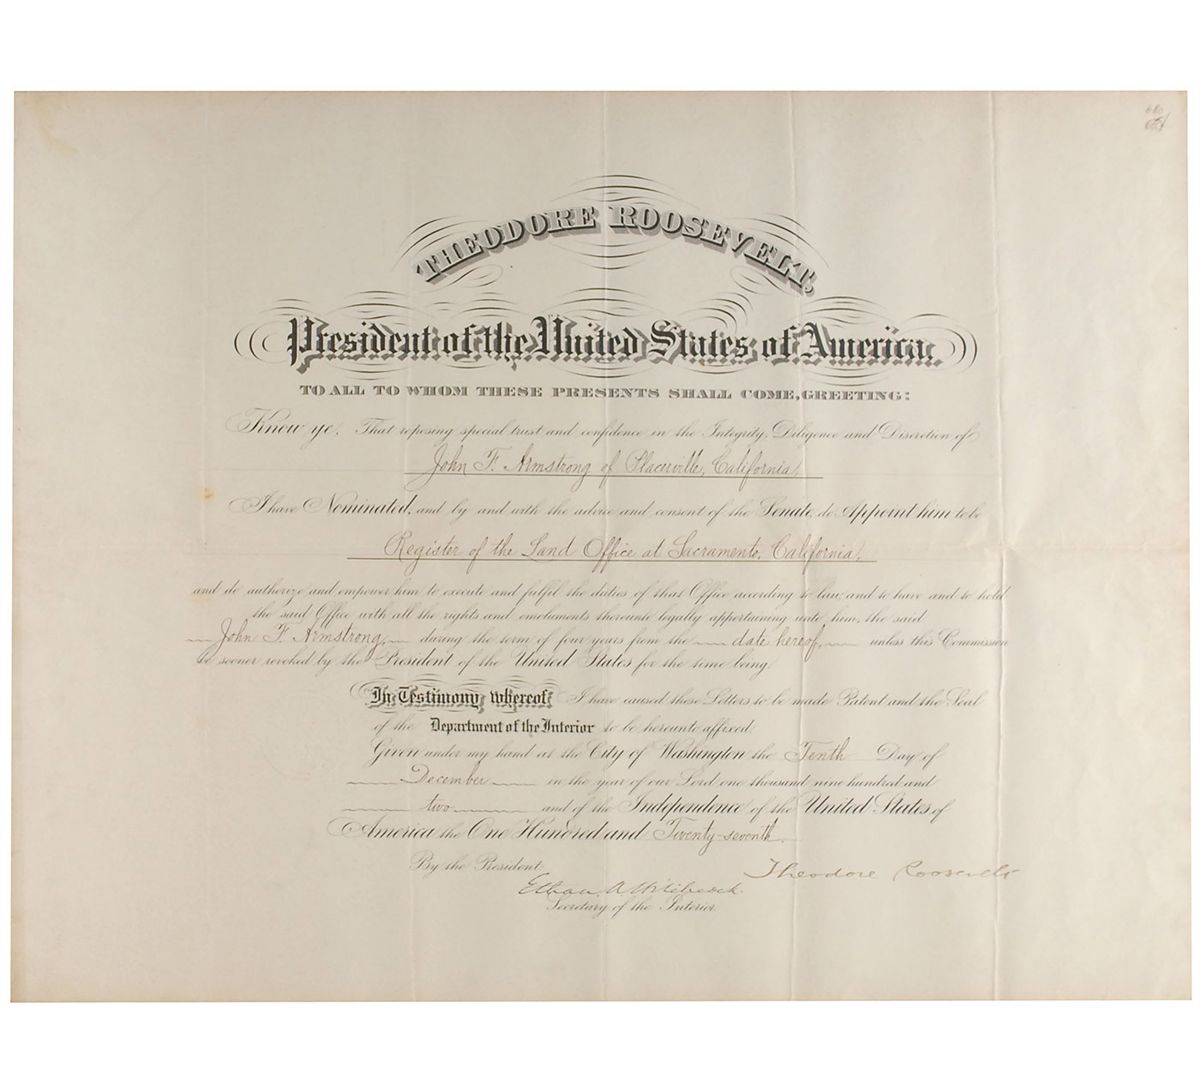 THEODORE ROOSEVELT,
President of the United States of America.
TO ALL TO WHOM THESE PRESENTS SHALL COME, GREETING:
Know ye, That reposing special trust and confidence in the Integrity, Diligence and Discretion of
John F. Armstrong of Placerville, California,
I have Nominated, and by and with the advice and consent of the Senate, do Appoint him to be
Register of the Land Office at Sacramento, California,
and do authorize and empower him to execute and fulfil the duties of that Office according to law, and to have and to hold
the said Office with all the rights and emoluments thereunto legally appertaining unto him, the said
John F. Armstrong, during the term of four years from the date hereof, unless this Commission
be sooner revoked by the President of the United States for the time being.
In Testimony whereof I have caused these Letters to be made Patent and the Seal
of the Department of the Interior to be hereunto affixed.
Given under my hand at the City of Washington the Tenth Day of
December in the year of our Lord one thousand nine hundred and
two and of the Independence of the United States of
America the One Hundred and Twenty-seventh.
By the President: Theodore Roosevelt
Ethan A Hitchcock.
Secretary of the Interior.